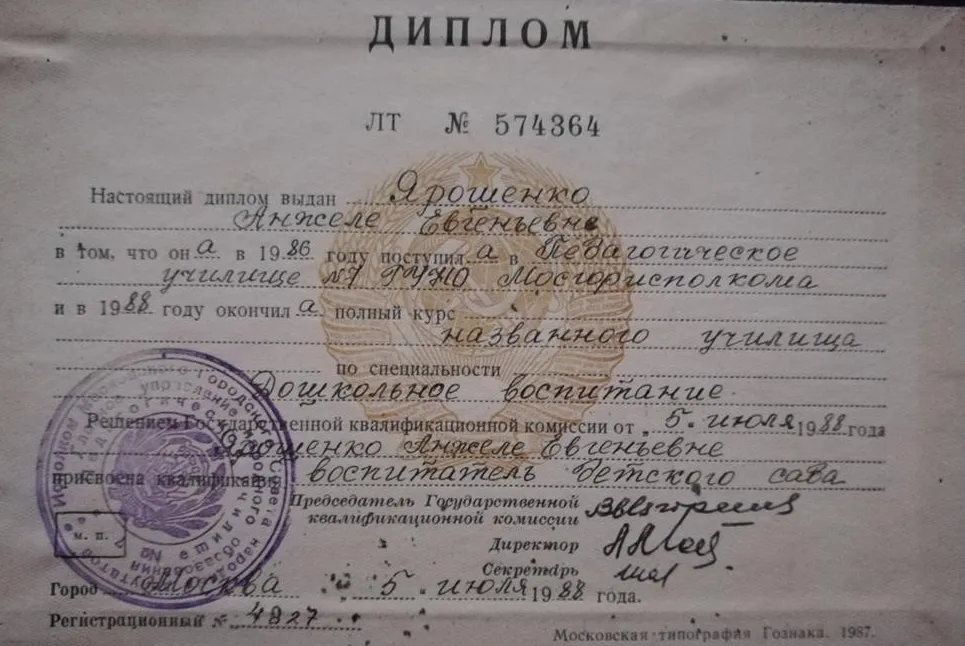 ДИПЛОМ
ЛТ № 574364
Настоящий диплом выдан Ярошенко
Анжеле Евгеньевне
в том, что он а в 1986 году поступил а в Педагогическое
училище №7 ГУНО Мосгорисполкома
и в 1988 году окончил а полный курс
названного училища
по специальности
Дошкольное воспитание
Решением Государственной квалификационной комиссии от „5. июля 1988 года
Ярошенко Анжеле Евгеньевне
присвоена квалификация воспитатель детского сада
Председатель Государственной
квалификационной комиссии
Директор
Секретарь
м. п.
Город Москва 5. июля 1988 года.
Регистрационный № 4827
Московская типография Гознака. 1987.